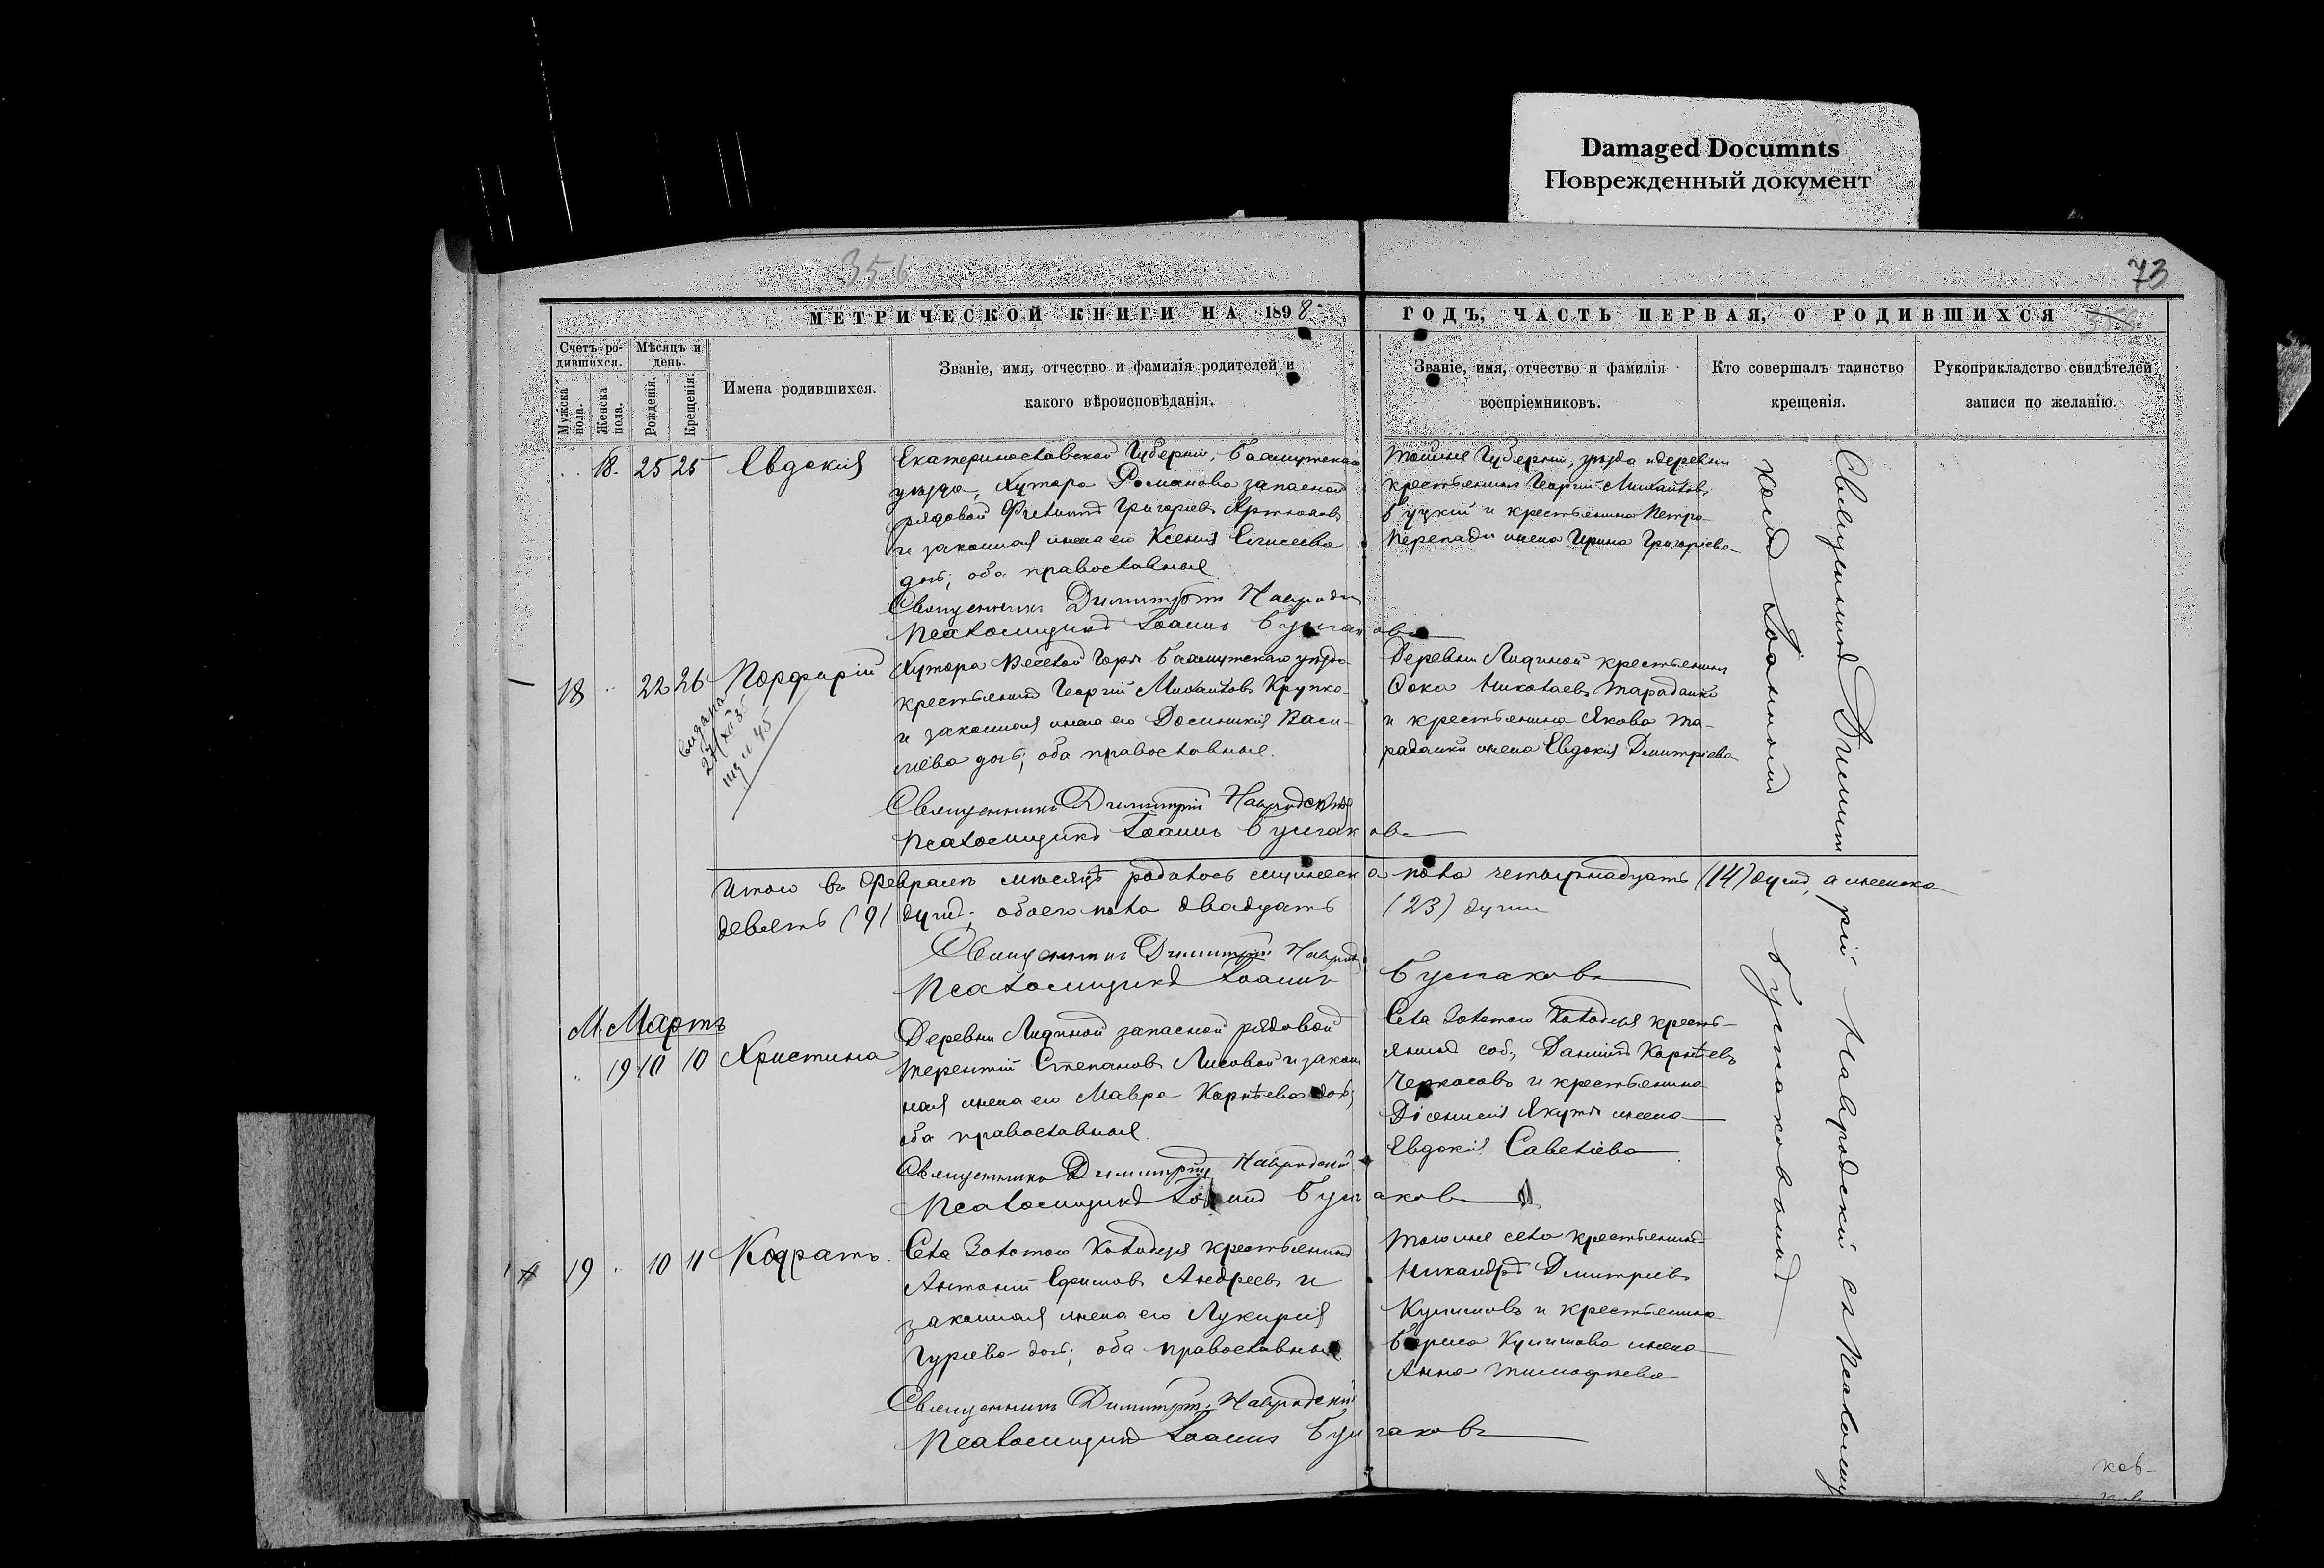 Damaged Documnts
Поврежденный документ
356
73
МЕТРИЧЕСКОЙ КНИГИ НА 1898
ГОДЪ, ЧАСТЬ ПЕРВАЯ, О РОДИВШИХСЯ
Счетъ ро-
дившихся.
Мужска пола.
Женска пола.
Мѣсяцъ и
день.
Рожденія.
Крещенія.
Имена родившихся.
Званіе, имя, отчество и фамилія родителей и
какого вѣроисповѣданія.
Званіе, имя, отчество и фамилія
воспріемниковъ.
Кто совершалъ таинство
крещенія.
Рукоприкладство свидѣтелей
записи по желанію.
18. 25 25 Евдокія
Екатеринославской Губерніи, Бахмутскаго
уѣзда, Хутора Романова запасной
рядовой Григорьевъ
и законная жена его Ксенія Елисеева
дочь; оба православные
Священникъ Димитрій
Псаломщикъ Іоаннъ Булгаковъ
Тойже Губерніи, уѣзда и деревни
крестьянинъ Георгій Михайловъ
Буцкій и крестьянина Петра
Перепади жена Ирина Григоріева
18 22 26 Порфирій
Хутора Веселой Горы Бахмутскаго уѣзда
крестьянинъ Георгій Михайловъ Крупко
и законная жена его Домникія Васи-
ліева дочь; оба православные.
Священникъ Димитрій Навродскій
Псаломщикъ Іоаннъ Булгаковъ
Деревни Лидиной крестьянинъ
Фока Николаевъ Тарадайко
и крестьянина Якова Та-
радайки жена Евдокія Дмитріева
Итого въ Февралѣ мѣсяцѣ родилось мужеска пола четырнадцать (14) душъ, а женска
девять (9) душъ; обоего пола двадцать (23) души
Священникъ Димитрій
Псаломщикъ Іоаннъ Булгаковъ
М. Мартъ
19 10 10 Христина
Деревни Лидиной запасной рядовой
Терентій Степановъ Лисовой и закон
ная жена его Мавра Корнѣева дочь;
оба православныя.
Священникъ Димитрій Навродскій
Псаломщикъ Іоаннъ Булгаковъ
Села Золотого Колодезя кресть-
янинъ соб. Даніилъ Корнѣевъ
Черкасовъ и крестьянина
Діонисія Якута жена
Евдокія Савеліева
19 10 11 Кодратъ.
Села Золотого Колодезя крестьянинъ
Антоній Ефимовъ Андреевъ и
законная жена его Лукирія
Гуріева дочь; оба православные
Священникъ Димитрій Навродскій
Псаломщикъ Іоаннъ Булгаковъ
Тогоже села крестьянинъ
Никандръ Дмитріевъ
Кулишовъ и крестьянина
Бориса Кулишова жена
Анна Тимофѣева
Священникъ Димитрій Навродскій съ Псаломщи
комъ Іоанномъ Булгаковымъ